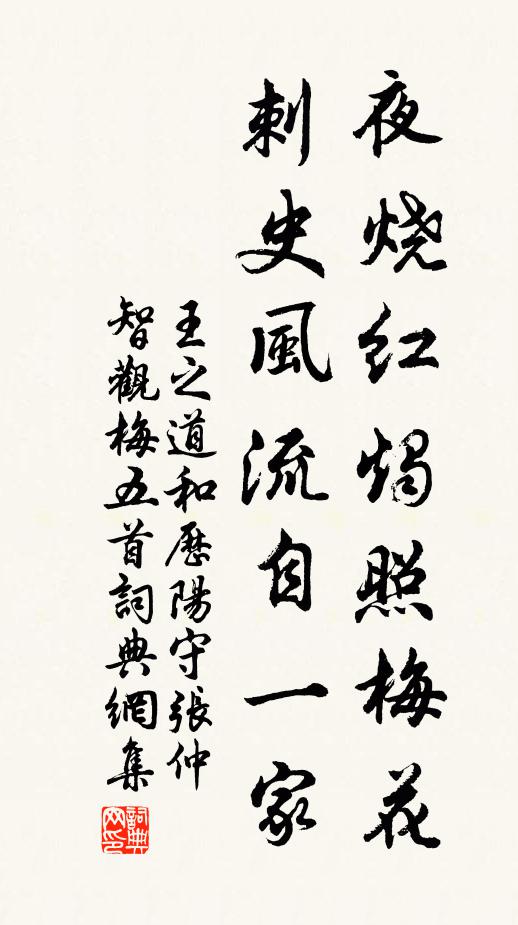 夜烧红烛照梅花
刺史風流自一家
王之道和歷陽守張仲
智觀梅五首詞典網集
詞典
网印